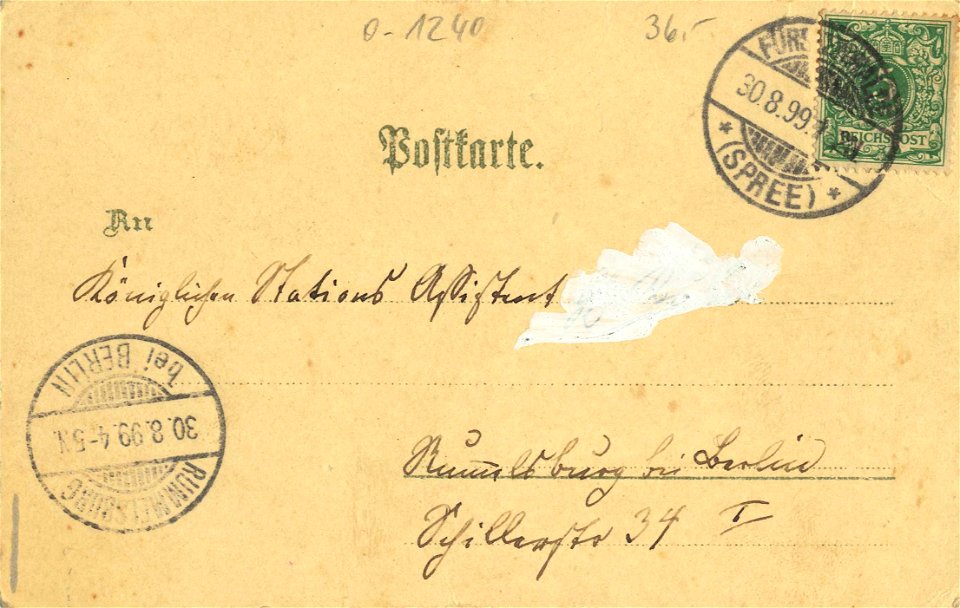 0-1240 36.-
FÜRSTENWALDE
30.8.99.
* (SPREE) *
5
REICHSPOST
Postkarte.
An
Königlichen Stations Assistent
bei BERLIN
30.8.99.4-5N.
RUMMELSBURG
Rummelsburg bei Berlin
Schillerstr 34 I